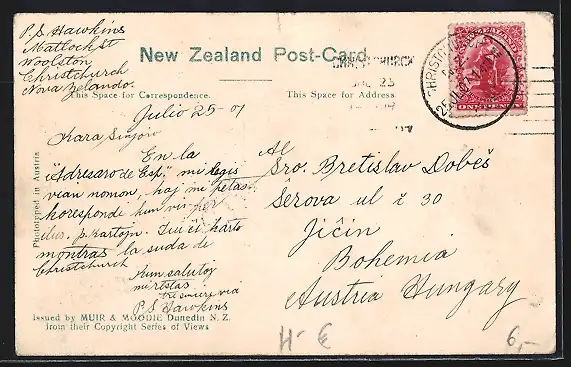 P.S Hawkins
Matlock st
Woolston
Christchurch
Nova Zelando.
New Zealand Post-Card.
This Space for Correspondence.
This Space for Address
CHRISTCHURCH
25
NEW ZEALAND
ONE PENNY
Julio 25 - 07
Kara Sinjoro
En la
"Adresaro de Esp," mi legis
vian nomon, kaj mi petas
koresponde kun vi per
ilus. p. kartojn. Tiu ĉi karto
montras la suda de
Christchurch
Kun salutoj
mi restas
tre sincere via
P.S Hawkins
Al
Sro. Bretislav Dobeš
Šerova ul č 30
Jičin
Bohemia
Austria Hungary
Phototyped in Austria
Issued by MUIR & MOODIE Dunedin N. Z.
from their Copyright Series of Views
H- €
6,-